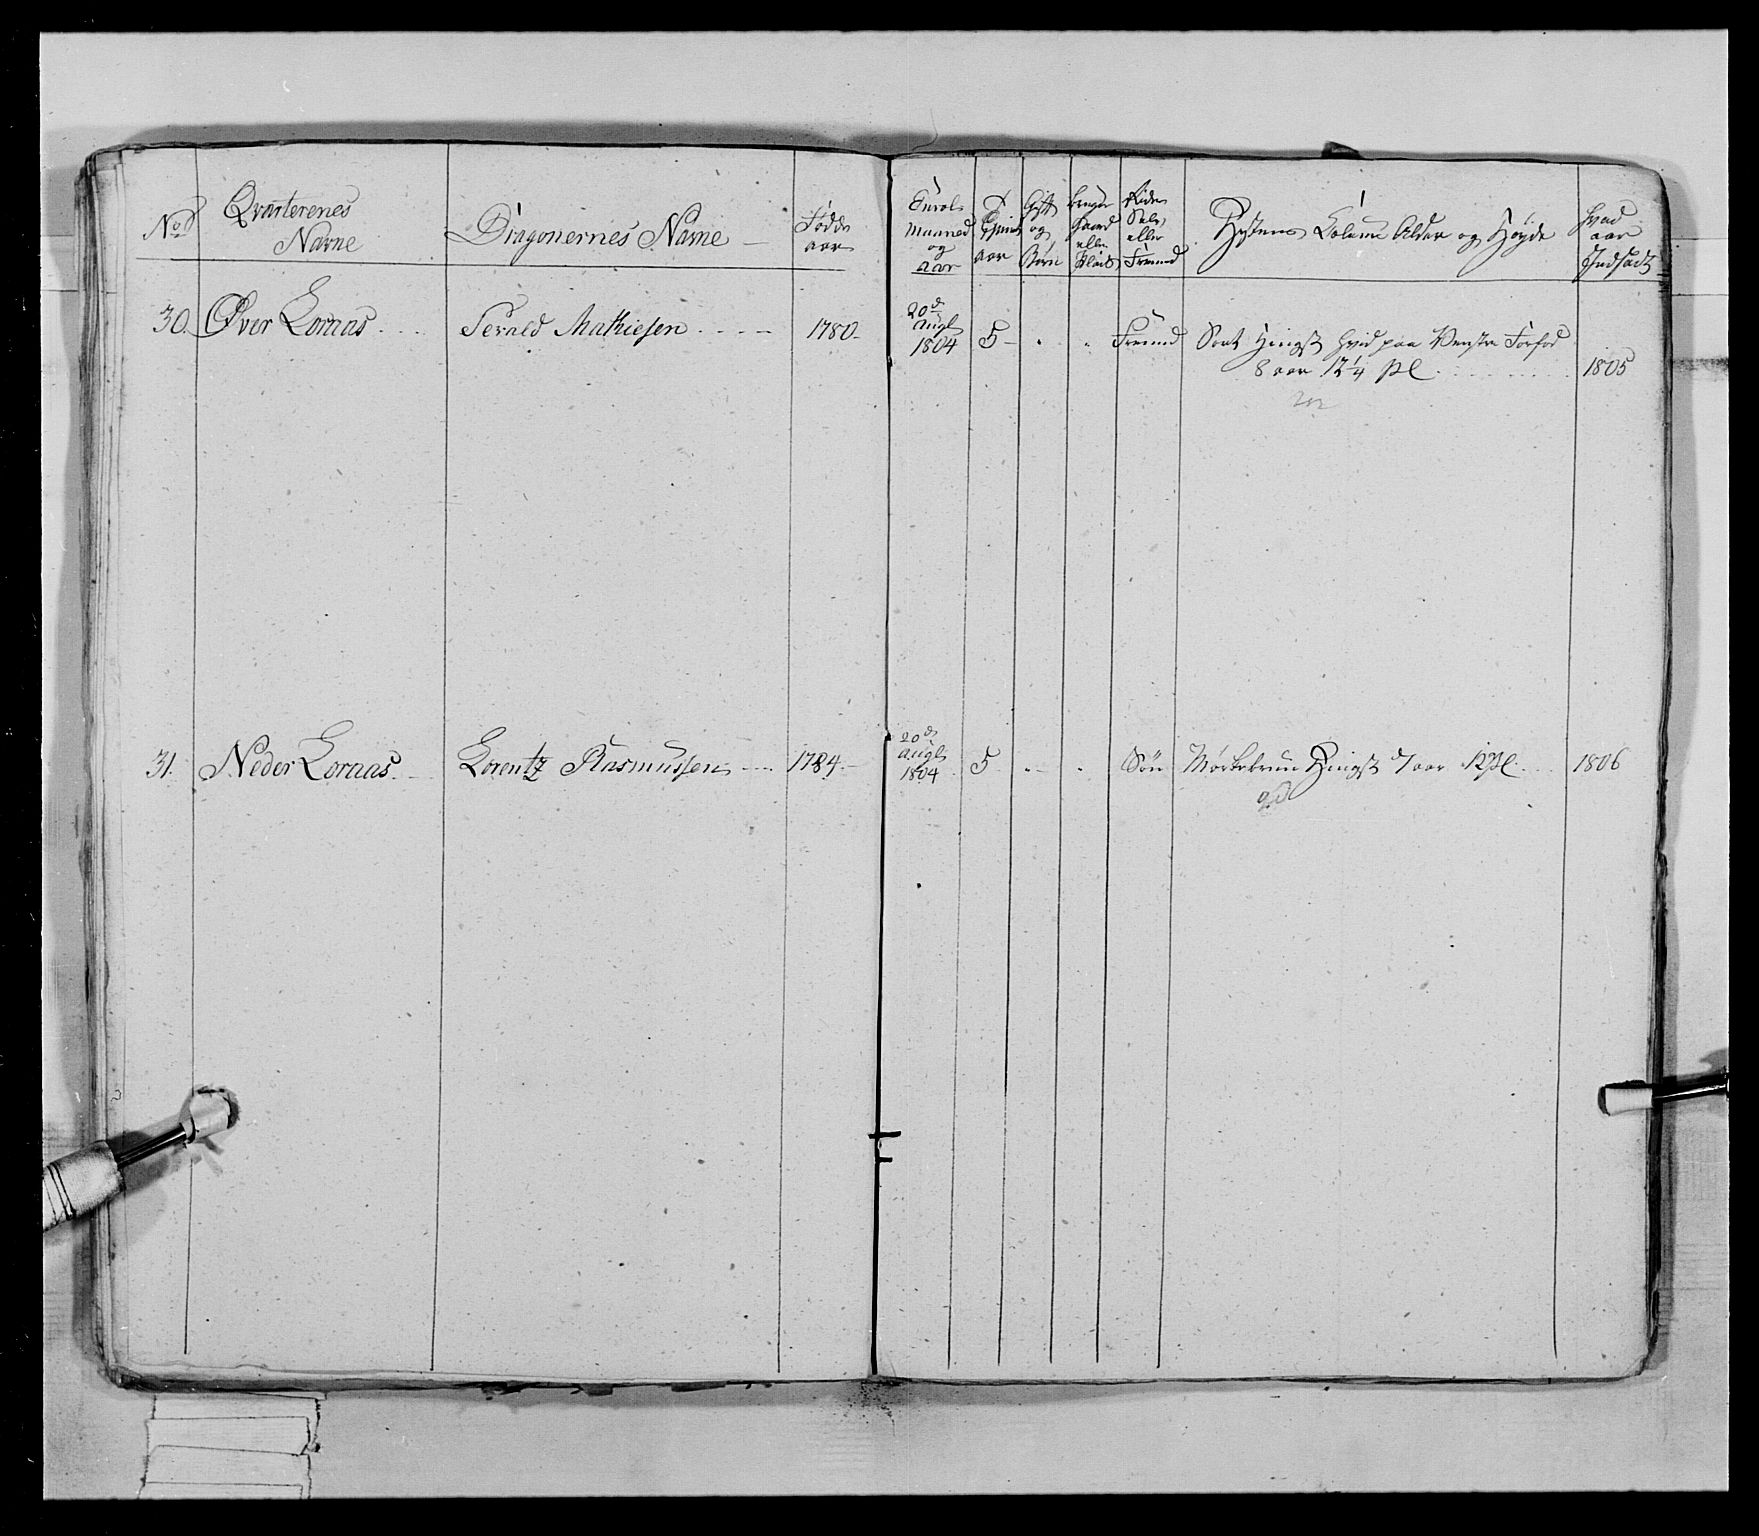 No
Qvarterenes
Navne
Dragonernes Navne
Fødde
aar
Enrol
Maaned
og
aar
Tjent
aar
Gift
og
Børn
bruger
Gaard
eller
Plads
Søn
eller
Fremd
Hestens Coleur Alder og Høyde
hvad
aar
Indsadt
30. Øver Lornas
Mathiesen
1780
20de
Augl
1804
5
Fremd
Sort Hingst hvid paa Venstre Forfod
8 aar 12 1/4 Pl
1805
31. Neder Lornas
Lorentz Rasmussen
1784
20de
Augl
1804
5
Søn
Mørkebrun Hingst 7 aar 12 Pl
1806